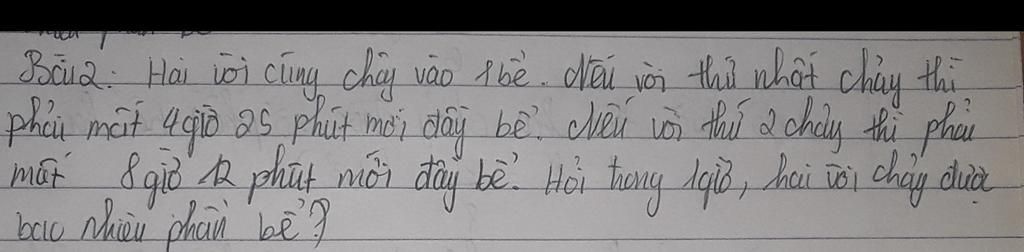 Bài 2. Hai vòi cùng chảy vào 1 bể. Nếu vòi thứ nhất chảy thì
phải mất 4 giờ 25 phút mới đầy bể. Nếu vòi thứ 2 chảy thì phải
mất 8 giờ 12 phút mới đầy bể. Hỏi trong 1 giờ, hai vòi chảy được
bao nhiêu phần bể?